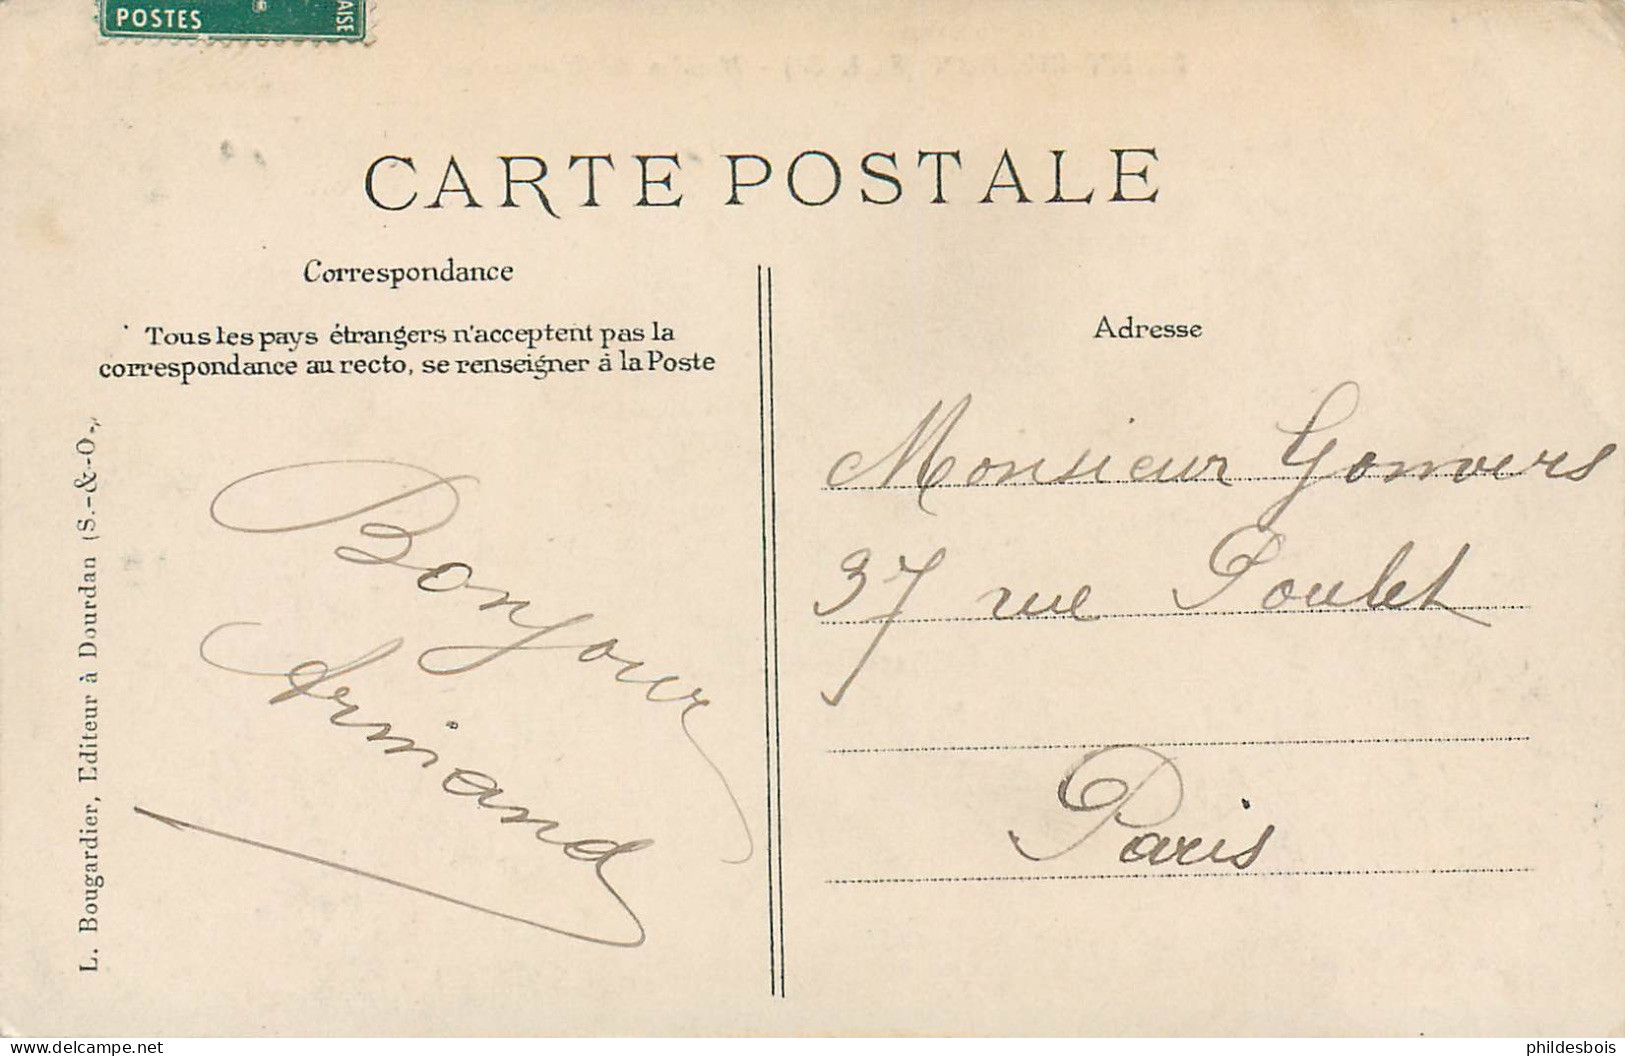 POSTES
AISE
CARTE POSTALE
Correspondance
Tous les pays étrangers n'acceptent pas la
correspondance au recto, se renseigner à la Poste
L. Bougardier, Editeur à Dourdan (S.-&-O.,
Bonjour
Armand
Adresse
Monsieur Gonvers
37 rue Poulet
Paris
delcampe.net
phildesbois